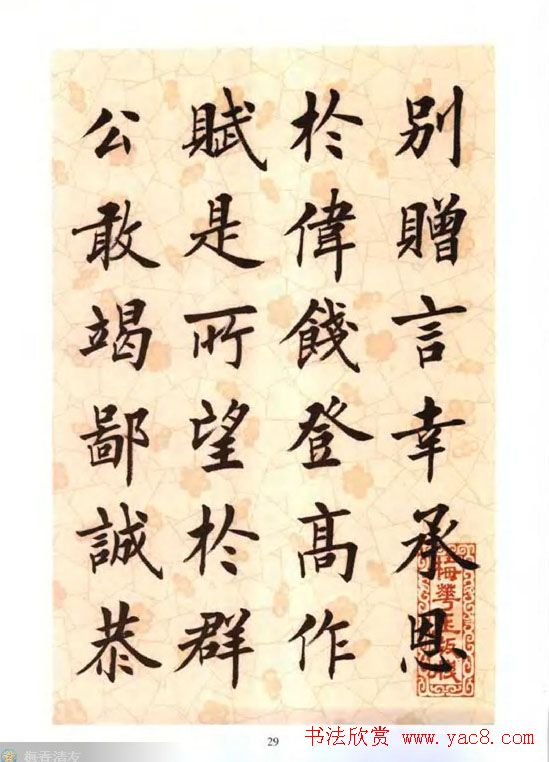 別贈言幸承恩
於偉餞登高作
賦是所望於群
公敢竭鄙誠恭
29
书法欣赏 www.yac8.com
梅香清友